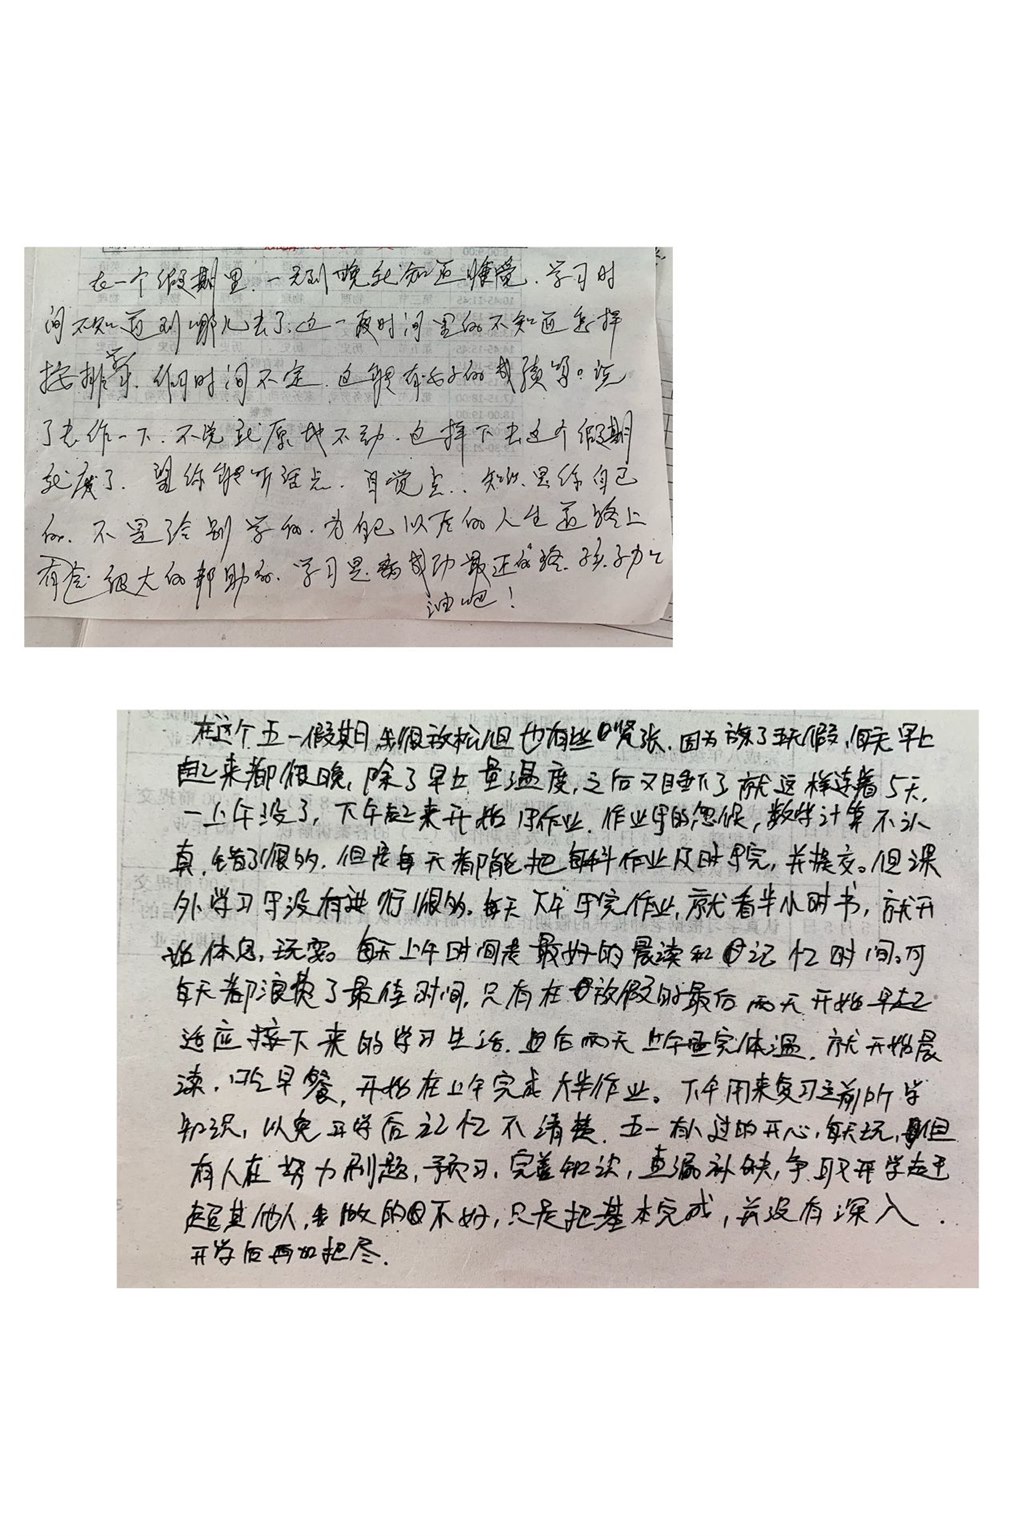 在一个假期里.一天到晚就知道睡觉.学习时
间不知道到哪儿去了.这一段时间里你不知道怎样
按排.作何时间不定.这能有好的成绩吗?说
了去作一下.不说就原地不动.这样下去这个假期
就废了.望你能听话点.自觉点..知识是你自己
的.不是给别学的.为自己以后的人生道路上
有会很大的帮助的.学习是成功最正的路.孩子加
油吧!
在这个五一假期我很放松但也有些紧张.因为放了五天假,每天早上
起来都很晚,除了早上量温度,之后又睡下了就这样连着5天.
一上午没了,下午起来开始写作业.作业写的忽促,数学计算不认
真,错了很多.但是每天都能把每科作业及时写完,并提交。但课
外学习写没有进行很多.每天下午写完作业,就看半小时书,就开
始休息,玩耍。每天上午时间是最好的晨读和记忆时间.可
每天都浪费了最佳时间,只有在放假的最后两天开始早起
适应接下来的学习生活.最后两天上午量完体温,就开始晨
读.吃早餐,开始在上午完成大半作业。下午用来复习之前所学
知识,以免开学后记忆不清楚.五一有人过的开心,每天玩,但
有人在努力刷题,预习,完善知识,查漏补缺,争取开学
超其他人,我做的不好,只是把基本完成,并没有深入.
开学后再加把尽.